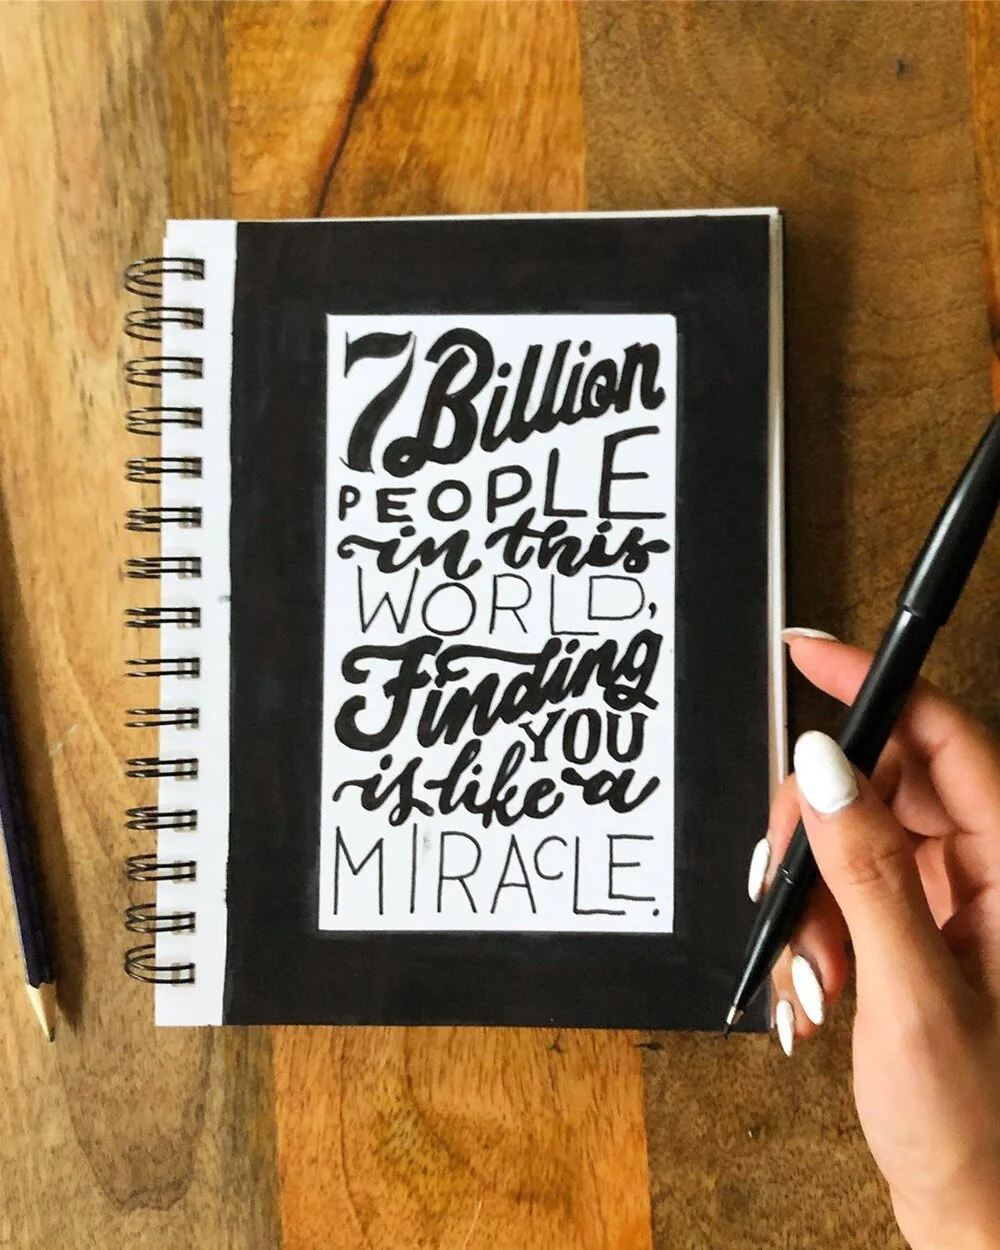 7 Billion
PEOPLE
in this
WORLD,
Finding
YOU
is like a
MIRACLE.